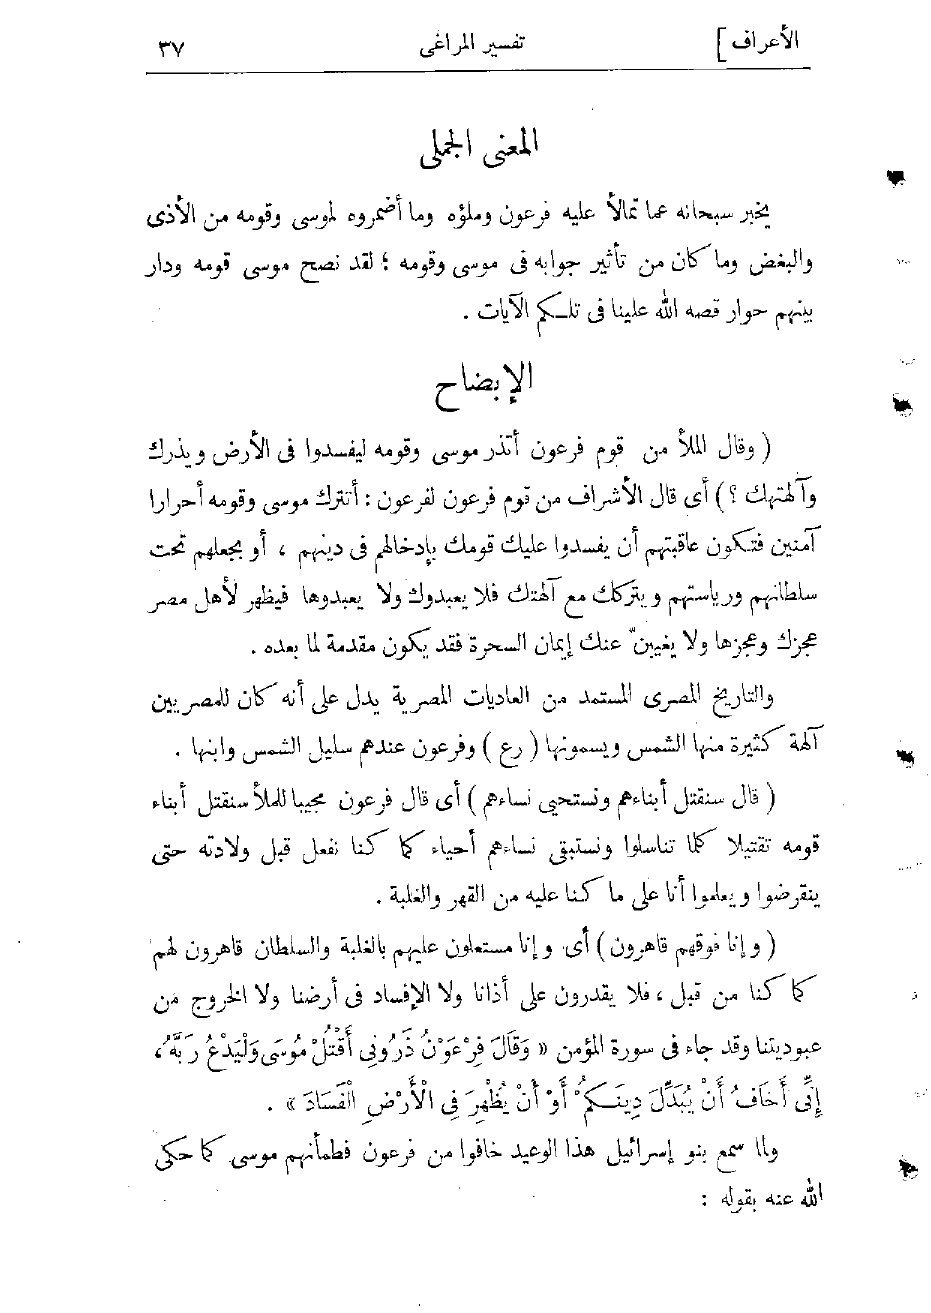 الأعراف ] تفسير المراغى ٣٧
المعنى الجملى
يخبر سبحانه عما تمالأ عليه فرعون وملؤه وما أضمروه لموسى وقومه من الأذى
والبغض وما كان من تأثير جوابه فى موسى وقومه ؛ لقد نصح موسى قومه ودار
بينهم حوار قصه الله علينا فى تلكم الآيات .
الإيضاح
( وقال الملأ من قوم فرعون أتذر موسى وقومه ليفسدوا فى الأرض ويذرك
وآلهتهك ؟ ) أى قال الأشراف من قوم فرعون لفرعون : أتترك موسى وقومه أحرارا
آمنين فتكون عاقبتهم أن يفسدوا عليك قومك بإدخالهم فى دينهم ، أو بجعلهم تحت
سلطانهم ورياستهم ويتركك مع آلهتك فلا يعبدوك ولا يعبدوها فيظهر لأهل مصر
عجزك وعجزها ولا يغيبنّ عنك إيمان السحرة فقد يكون مقدمة لما بعده .
والتاريخ المصرى المستمد من العاديات المصرية يدل على أنه كان للمصريين
آلهة كثيرة منها الشمس ويسمونها ( رع ) وفرعون عندهم سليل الشمس وابنها .
( قال سنقتل أبناءهم ونستحيى نساءهم ) أى قال فرعون مجيبا للملأ سنقتل أبناء
قومه تقتيلا كلما تناسلوا ونستبقى نساءهم أحياء كما كنا نفعل قبل ولادته حتى
ينقرضوا ويعلموا أنا على ما كنا عليه من القهر والغلبة .
( وإنا فوقهم قاهرون ) أى وإنا مستعلون عليهم بالغلبة والسلطان قاهرون لهم
كما كنا من قبل ، فلا يقدرون على أذانا ولا الإفساد فى أرضنا ولا الخروج من
عبوديتنا وقد جاء فى سورة المؤمن « وَقَالَ فِرْعَوْنُ ذَرُونِى أَقْتُلْ مُوسَى وَلْيَدْعُ رَبَّهُ ،
إِنِّى أَخَافُ أَنْ يُبَدِّلَ دِينَكُمْ أَوْ أَنْ يُظْهِرَ فِى الْأَرْضِ الْفَسَادَ » .
ولما سمع بنو إسرائيل هذا الوعيد خافوا من فرعون فطمأنهم موسى كما حكى
الله عنه بقوله :